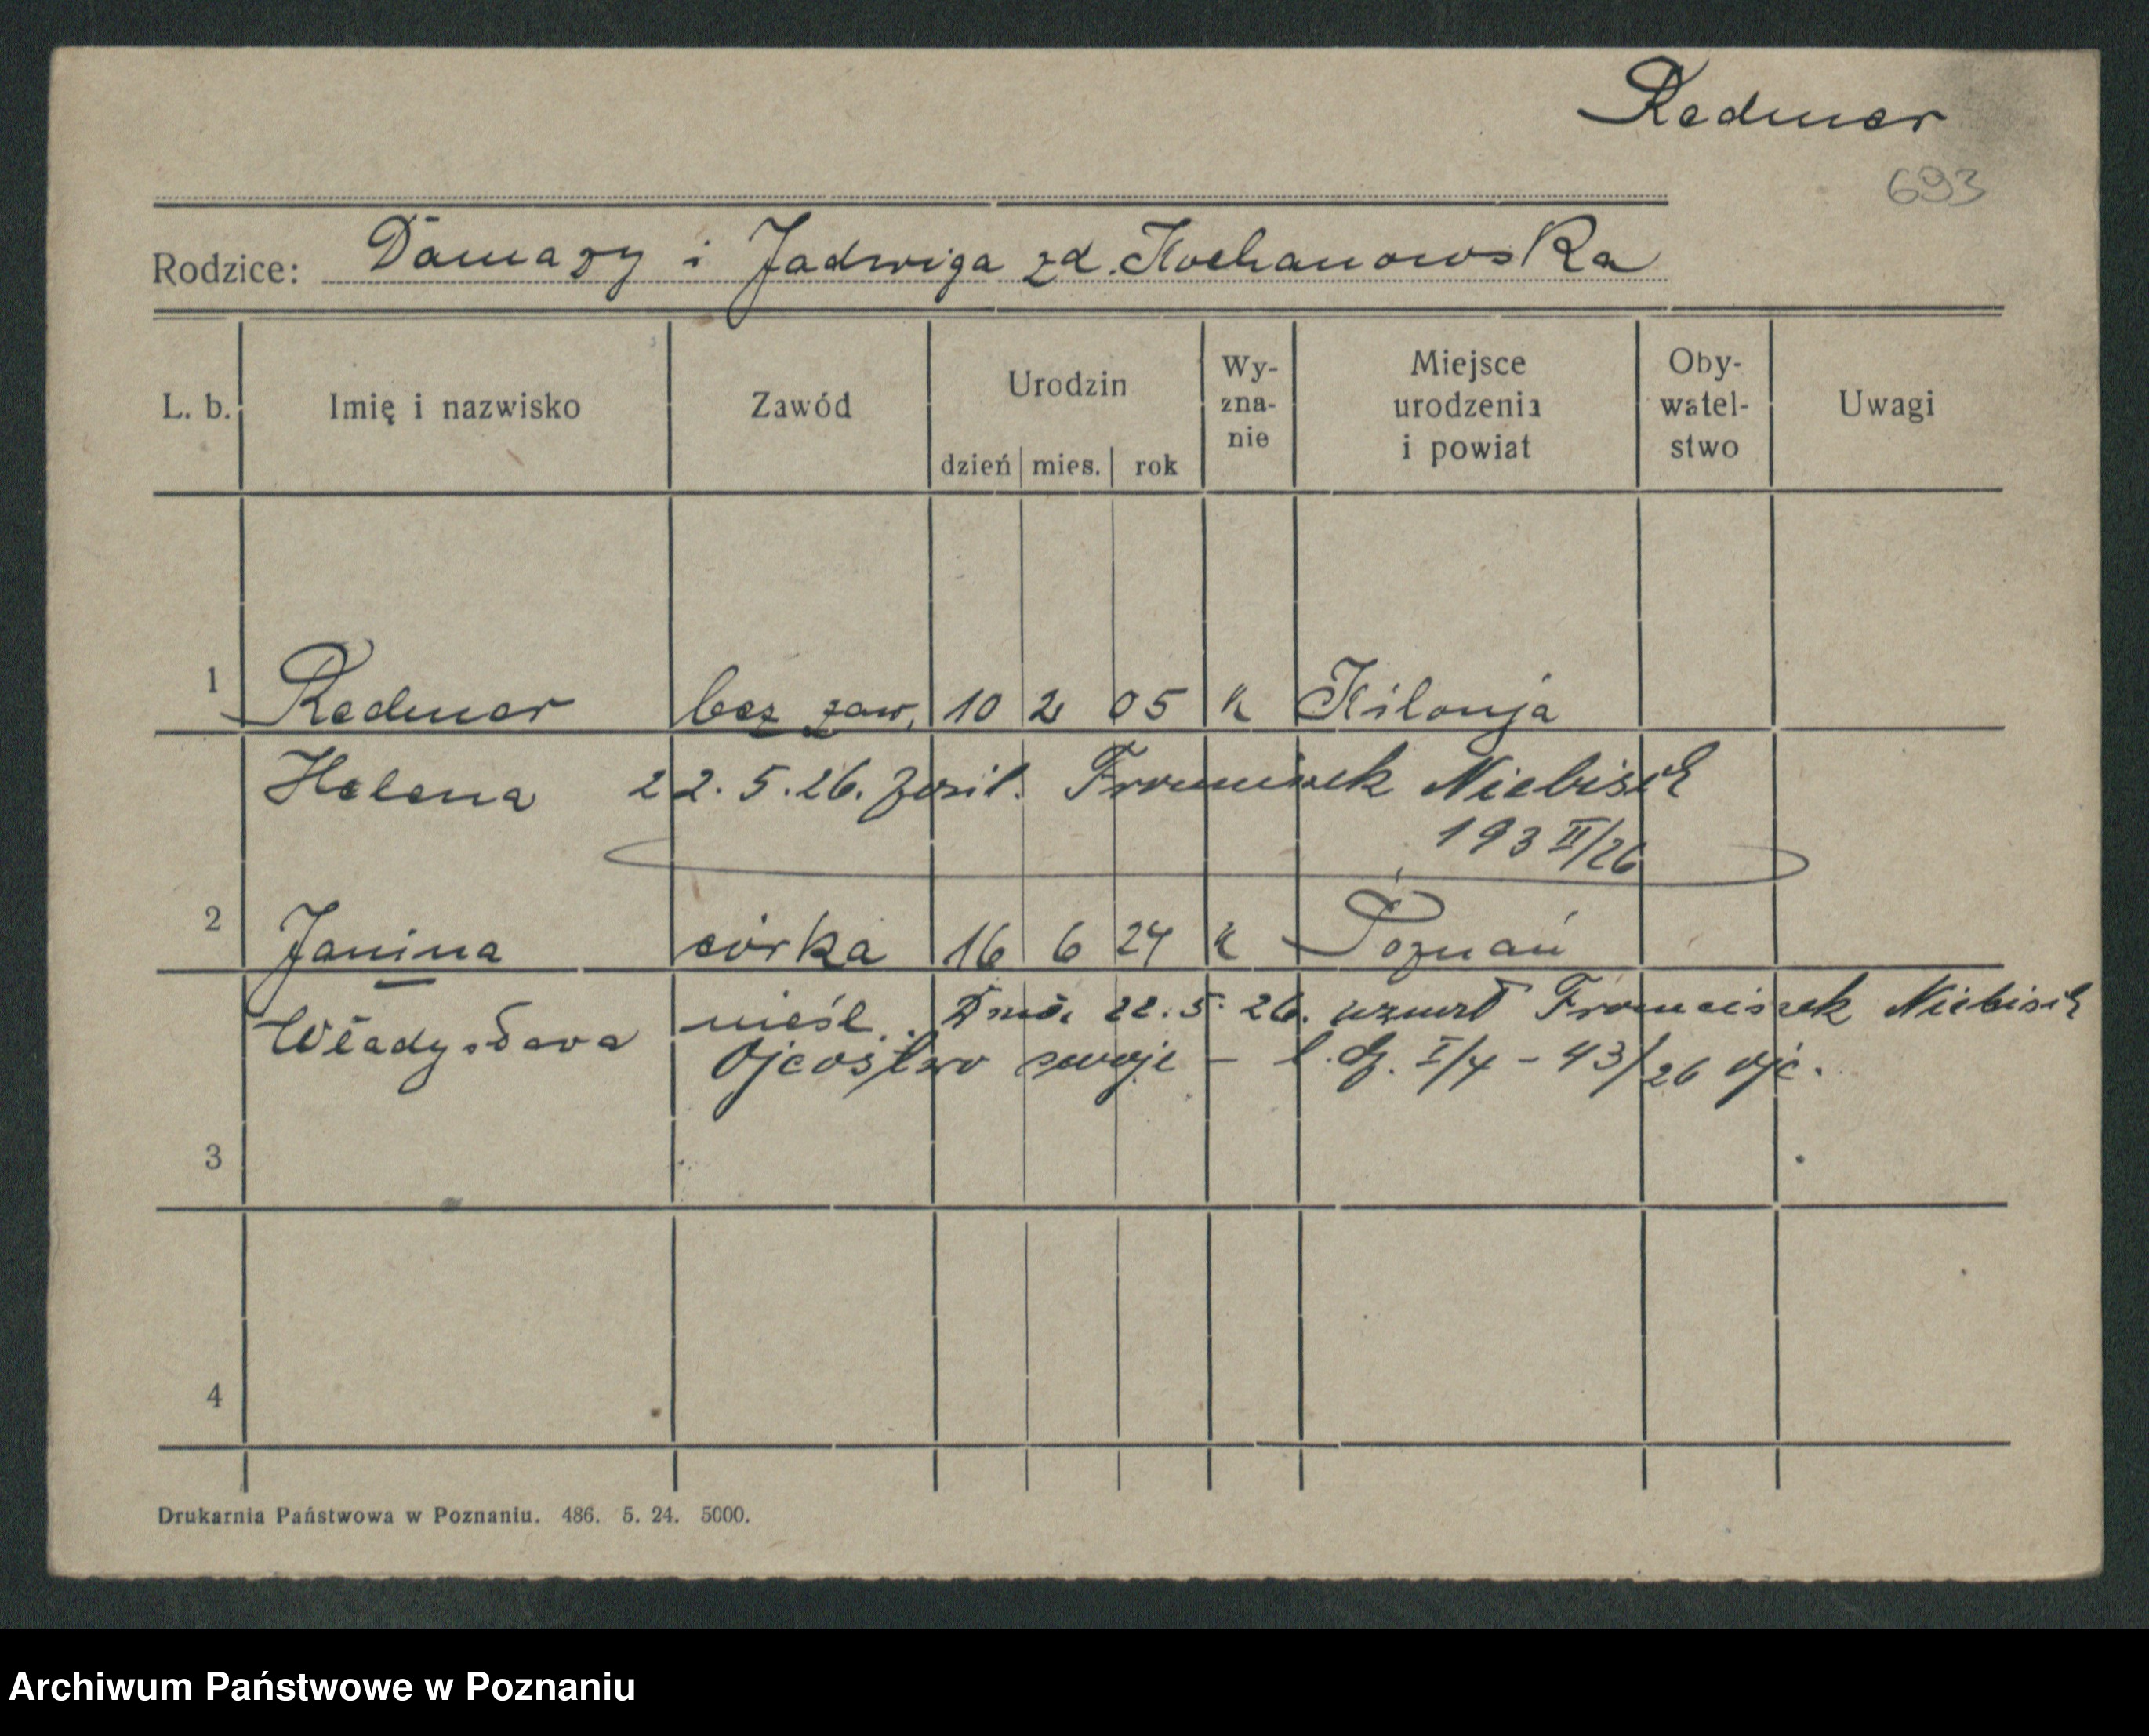 Redmer
693
Rodzice: Damazy i Jadwiga zd. Kochanowska
L. b.
Imię i nazwisko
Zawód
Urodzin
dzień mies. rok
Wy-
zna-
nie
Miejsce
urodzenia
i powiat
Oby-
watel-
stwo
Uwagi
1 Redmer bez zaw. 10 2 05 k Kilonja
Helena 22. 5. 26. Franciszek Niebisch
193 II/26
2 Janina córka 16 6 24 k Poznań
Władysława nieśl. Dnia 22. 5. 26. uznał Franciszek Niebisch
Ojcostwo swoje – l. dz. I/4 – 43/26 ojc.
3
4
Drukarnia Państwowa w Poznaniu. 486. 5. 24. 5000.
Archiwum Państwowe w Poznaniu